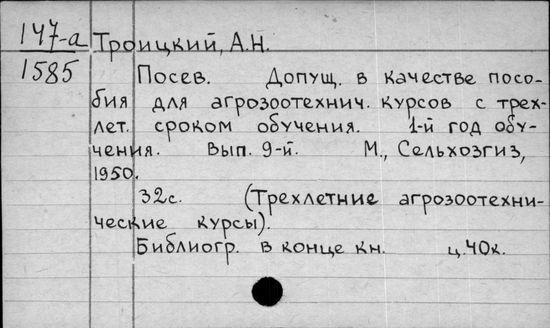 147-а Троицкий, А.Н.
1585 Посев. Допущ. в качестве посо-
бия для агрозоотехнич. курсов с трех-
лет. сроком обучения. 1-й год обу-
чения. Вып. 9-й. М., Сельхозгиз,
1950.
32с. (Трехлетние агрозоотехни-
ческие курсы).
Библиогр. в конце кн. ц.40к.